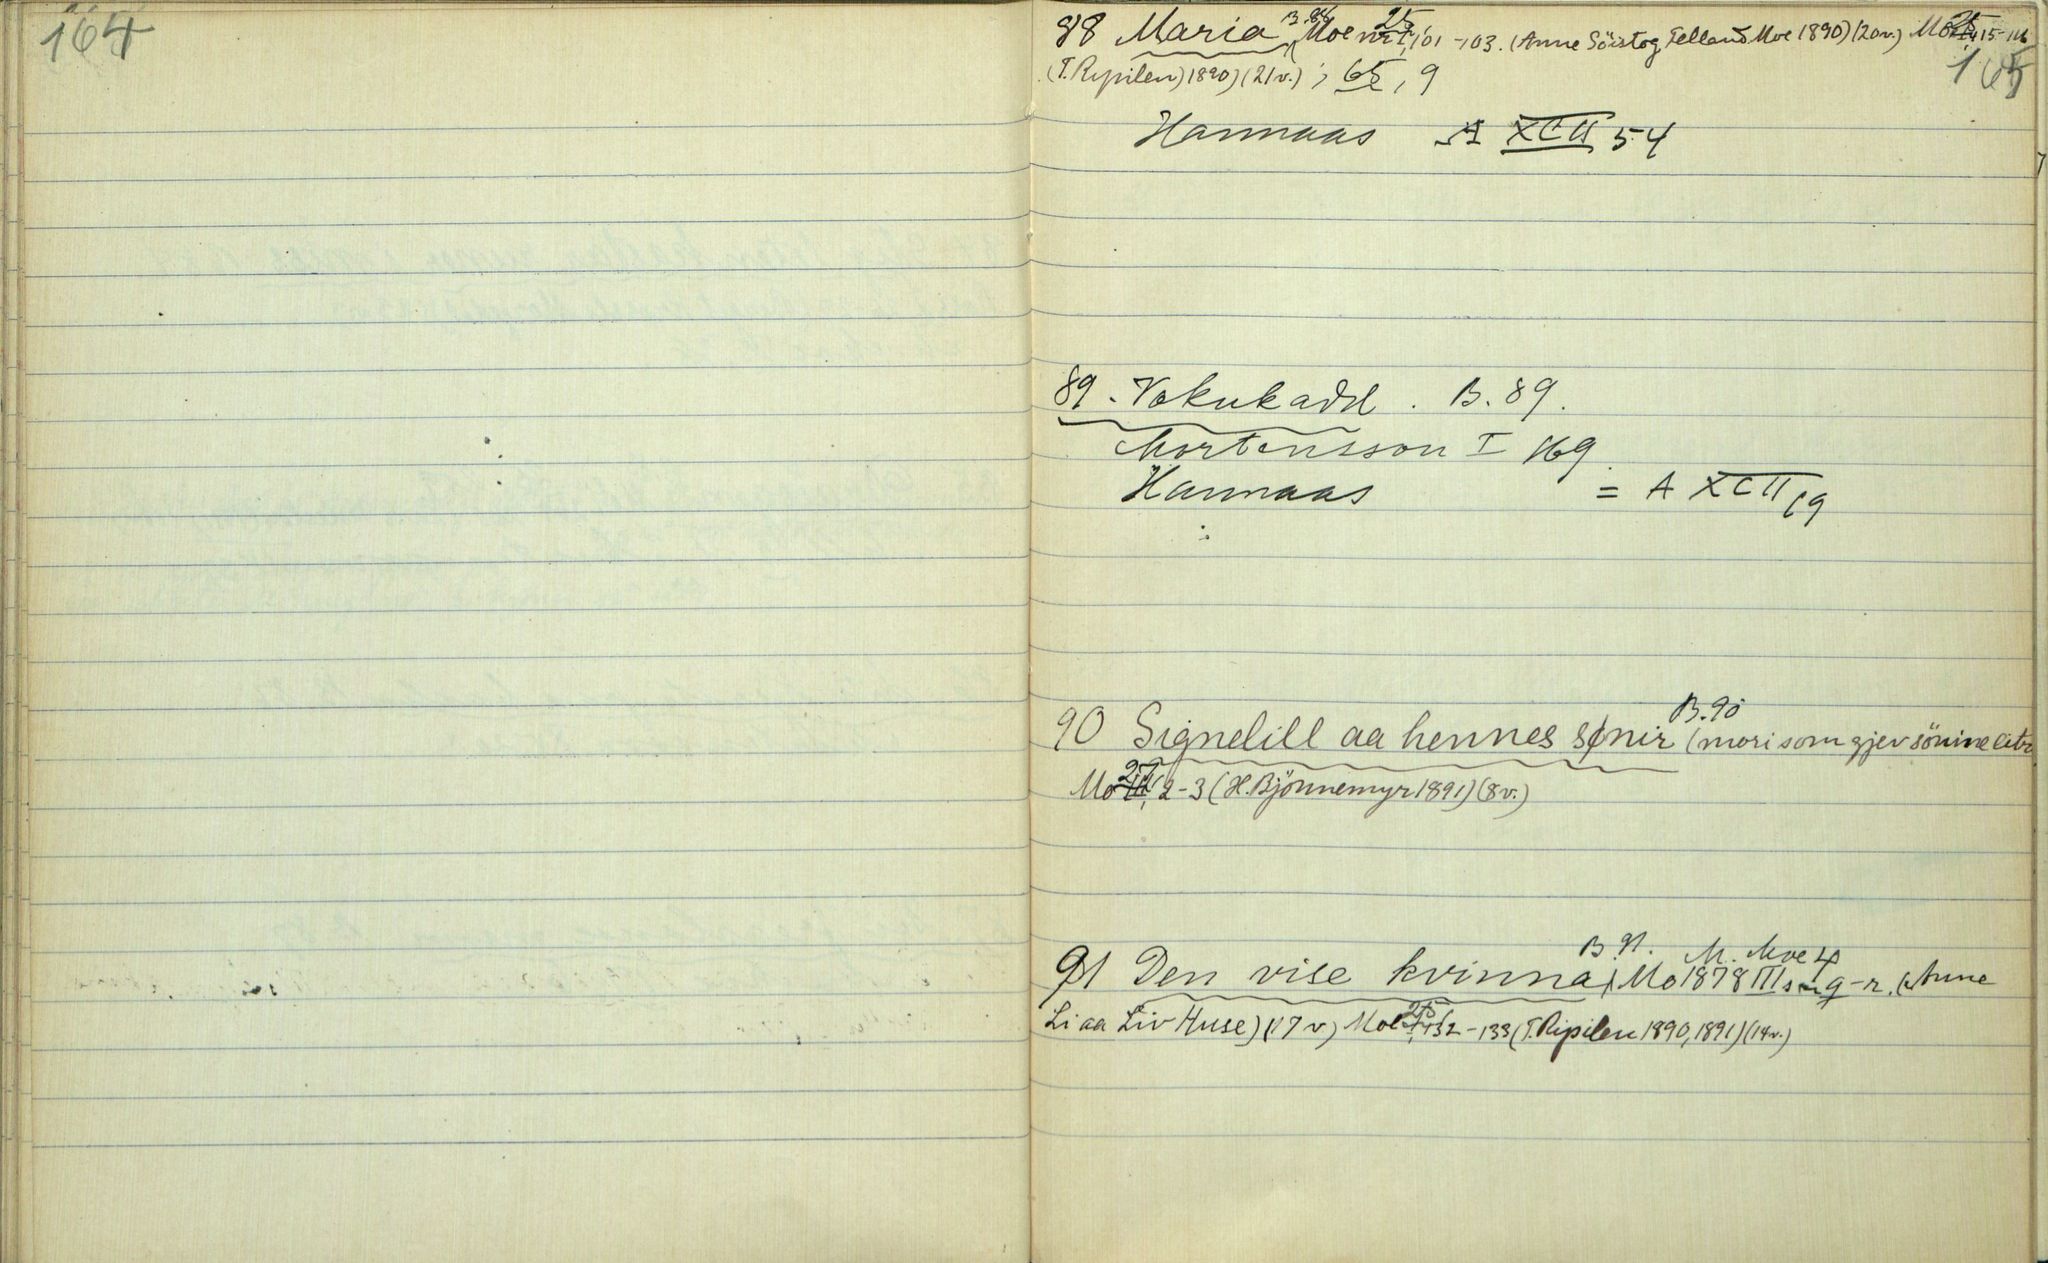 164
165
88 Maria B.88 (Moe 25, 101-103. (Anne Söistog Felland Moe 1890) (20v.) Mo 25, 115-116
(T. Ripilen) 1890) (21v.) ; 65, 9
Hannaas A XCII 54
89. Vakukadl. B. 89.
Mortensson I 169.
Hannaas = A XCII 19
90 Signelill aa hennes sønir B. 90 (mori som gjev sönine
Mo 27, 2-3 (H. Björnnemyr 1891) (8v.)
B. 91. M. Moe 4
91 Den vise kvinna, (Mo 1878 III q-r. (Anne
Li aa Liv Huse) (17v) Moe 25, 132-133 (T. Ripilen 1890, 1891) (14v.)